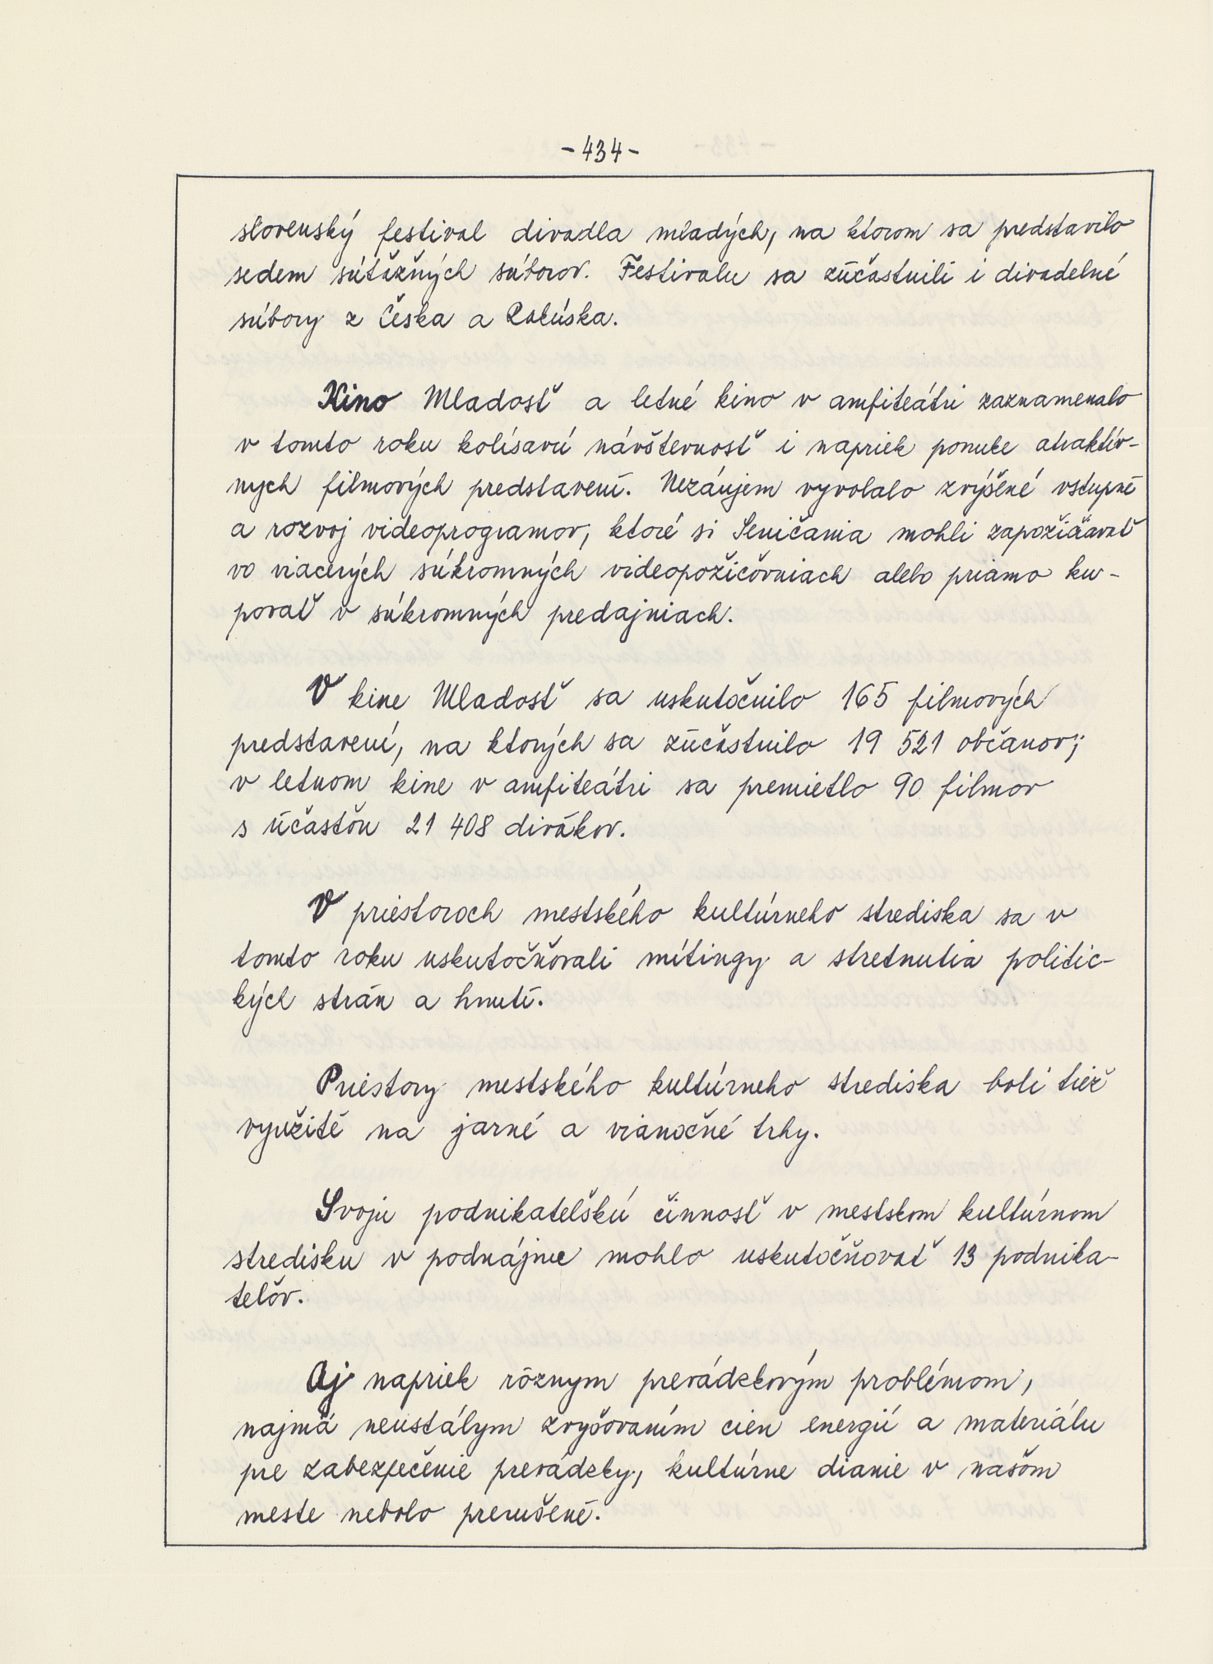 -434-
slovenský festival divadla mladých, na ktorom sa predstavilo
sedem súťažných súborov. Festivalu sa zúčastnili i divadelné
súbory z Česka a Rakúska.
Kino Mladosť a letné kino v amfiteátri zaznamenalo
v tomto roku kolísavú návštevnosť i napriek ponuke atraktív-
nych filmových predstavení. Nezáujem vyvolalo zvýšené vstupné
a rozvoj videoprogramov, ktoré si Seničania mohli zapožičiavať
vo viacerých súkromných videopožičovniach alebo priamo ku-
povať v súkromných predajniach.
V kine Mladosť sa uskutočnilo 165 filmových
predstavení, na ktorých sa zúčastnilo 19 521 občanov;
v letnom kine v amfiteátri sa premietlo 90 filmov
s účasťou 21 408 divákov.
V priestoroch mestského kultúrneho strediska sa v
tomto roku uskutočňovali mítingy a stretnutia politic-
kých strán a hnutí.
Priestory mestského kultúrneho strediska boli tiež
využité na jarné a vianočné trhy.
Svoju podnikateľskú činnosť v mestskom kultúrnom
stredisku v podnájme mohlo uskutočňovať 13 podnika-
teľov.
Aj napriek rôznym prevádzkovým problémom,
najmä neustálym zvyšovaním cien energií a materiálu
pre zabezpečenie prevádzky, kultúrne dianie v našom
meste nebolo prerušené.